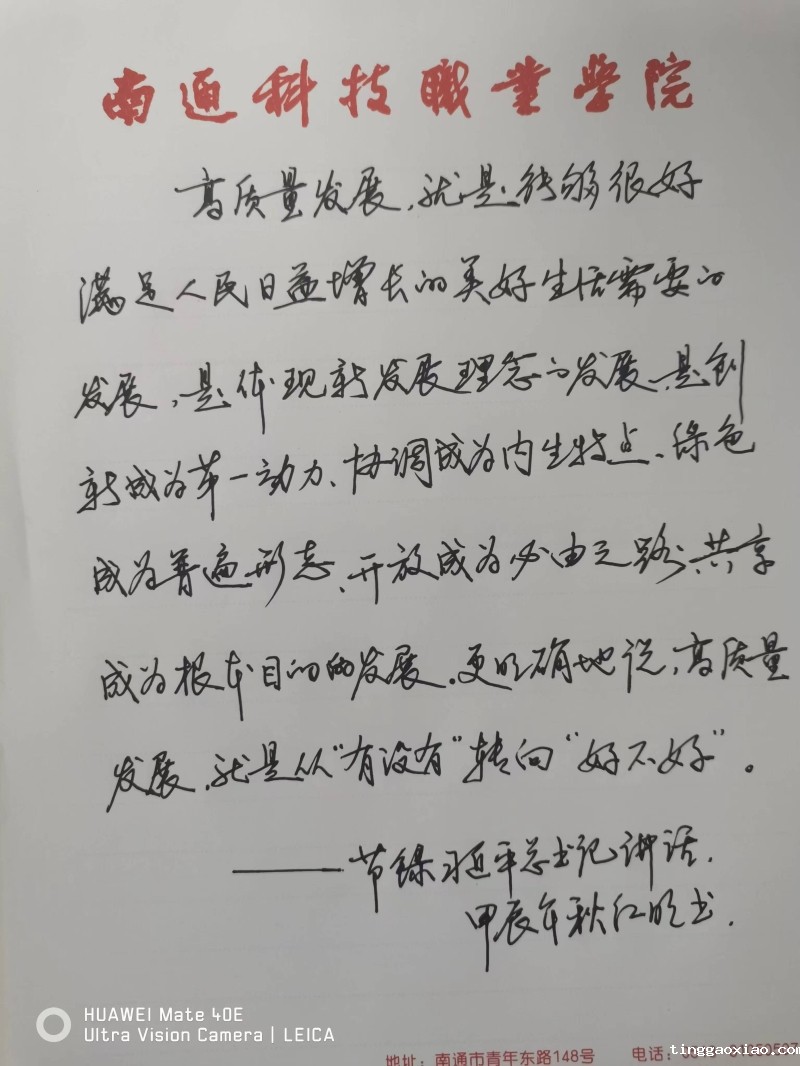 南通科技职业学院
高质量发展，就是能够很好
满足人民日益增长的美好生活需要的
发展，是体现新发展理念的发展，是创
新成为第一动力、协调成为内生特点、绿色
成为普遍形态、开放成为必由之路、共享
成为根本目的的发展。更明确地说，高质量
发展，就是从“有没有”转向“好不好”。
——节录习近平总书记讲话．
甲辰年秋红明书．
HUAWEI Mate 40E
Ultra Vision Camera | LEICA
地址：南通市青年东路148号 电话：
tinggaoxiao.com